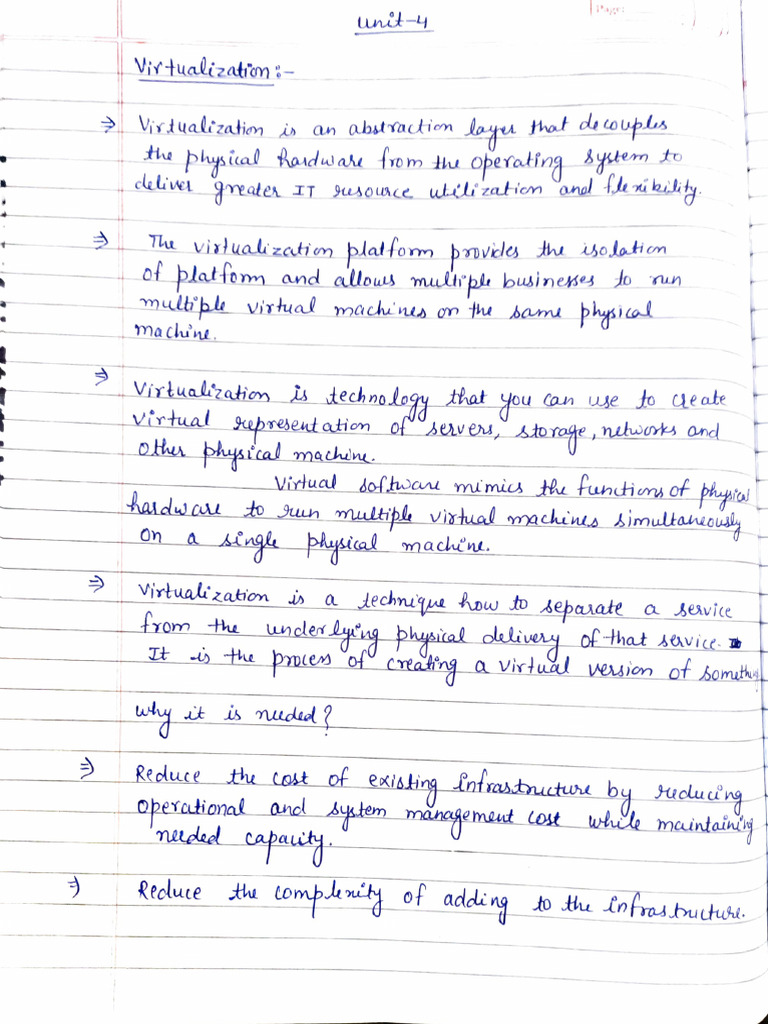 Page:
Unit-4
Virtualization:-
⇒ Virtualization is an abstraction layer that decouples
the physical hardware from the operating system to
deliver greater IT resource utilization and flexibility.
⇒ The virtualization platform provides the isolation
of platform and allows multiple businesses to run
multiple virtual machines on the same physical
machine.
⇒ Virtualization is technology that you can use to create
virtual representation of servers, storage, networks and
other physical machine.
Virtual software mimics the functions of physical
hardware to run multiple virtual machines simultaneously
on a single physical machine.
⇒ Virtualization is a technique how to separate a service
from the underlying physical delivery of that service.
It is the process of creating a virtual version of something
why it is needed?
⇒ Reduce the cost of existing infrastructure by reducing
operational and system management cost while maintaining
needed capacity.
⇒ Reduce the complexity of adding to the infrastructure.